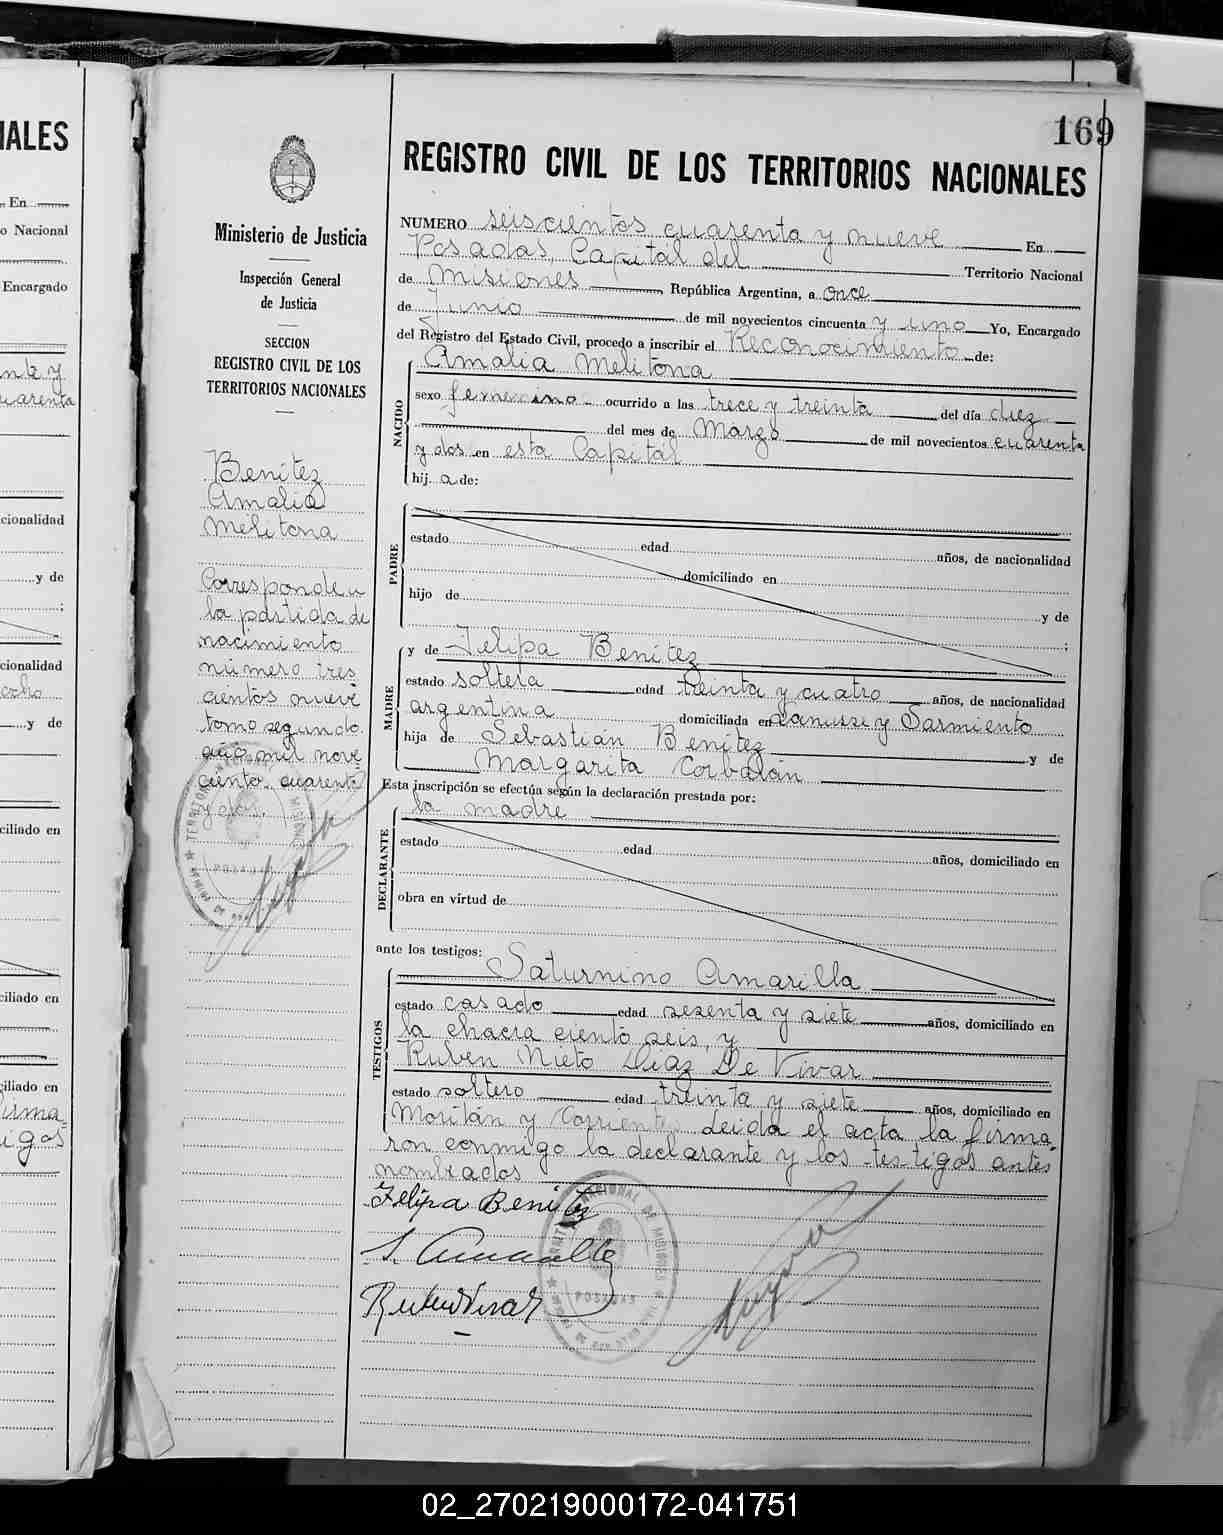 169
REGISTRO CIVIL DE LOS TERRITORIOS NACIONALES
Ministerio de Justicia
Inspección General
de Justicia
SECCION
REGISTRO CIVIL DE LOS
TERRITORIOS NACIONALES
Benítez
Amalia
Melitona
Corresponde a
la partida de
nacimiento
número tres
cientos nueve
tomo segundo
año mil nove
ciento cuarenta
y dos.
NUMERO seiscientos cuarenta y nueve En
Posadas, Capital del Territorio Nacional
de Misiones, República Argentina, a once
de Junio de mil novecientos cincuenta y uno Yo, Encargado
del Registro del Estado Civil, procedo a inscribir el Reconocimiento de:
Amalia Melitona
NACIDO
sexo femenino ocurrido a las trece y treinta del día diez
del mes de Marzo de mil novecientos cuarenta
y dos en esta Capital
hij a de:
PADRE
estado edad años, de nacionalidad
domiciliado en
hijo de y de
;
MADRE
y de Felipa Benítez
estado soltera edad treinta y cuatro años, de nacionalidad
argentina domiciliada en Lanusse y Sarmiento
hija de Sebastián Benítez y de
Margarita Corbalán
Esta inscripción se efectúa según la declaración prestada por:
la madre
DECLARANTE
estado edad años, domiciliado en
obra en virtud de
ante los testigos:
TESTIGOS
Saturnino Amarilla
estado casado edad sesenta y siete años, domiciliado en
la chacra ciento seis, y
Ruben Nieto Diaz De Vivar
estado soltero edad treinta y siete años, domiciliado en
Moritán y Corrientes Leida el acta la firma
ron conmigo la declarante y los testigos antes
nombrados
Felipa Benitez
S. Amarilla
Ruben Vivar
POSADAS
POSADAS
IALES
En
o Nacional
Encargado
cionalidad
y de
;
cionalidad
y de
ciliado en
ciliado en
ciliado en
02_270219000172-041751